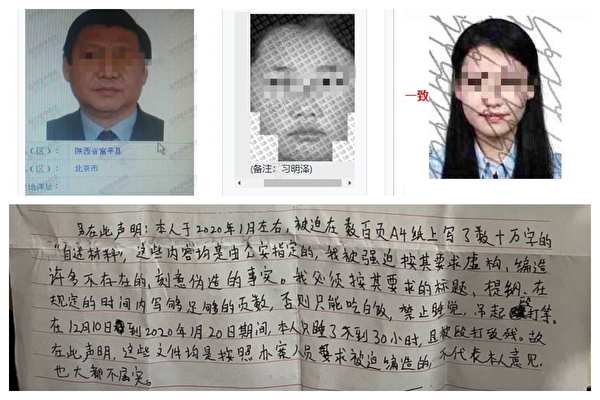 (区): 陕西省富平县
(区): 北京市
(备注：习明泽)
一致
另在此声明：本人于2020年1月左右，被迫在数百页A4纸上写了数十万字的
"自述材料"，这些内容均是由公安指定的，我被强迫按其要求虚构、编造
许多不存在的、刻意伪造的事实。我必须按其要求的标题、提纲、在
规定的时间内写够足够的页数，否则只能吃白饭，禁止睡觉，吊起打等。
在12月10日到2020年1月20日期间，本人只睡了不到30小时，且被殴打致残。故
在此声明，这些文件均是按照办案人员要求被迫编造的，不代表本人意见，
也大都不属实。